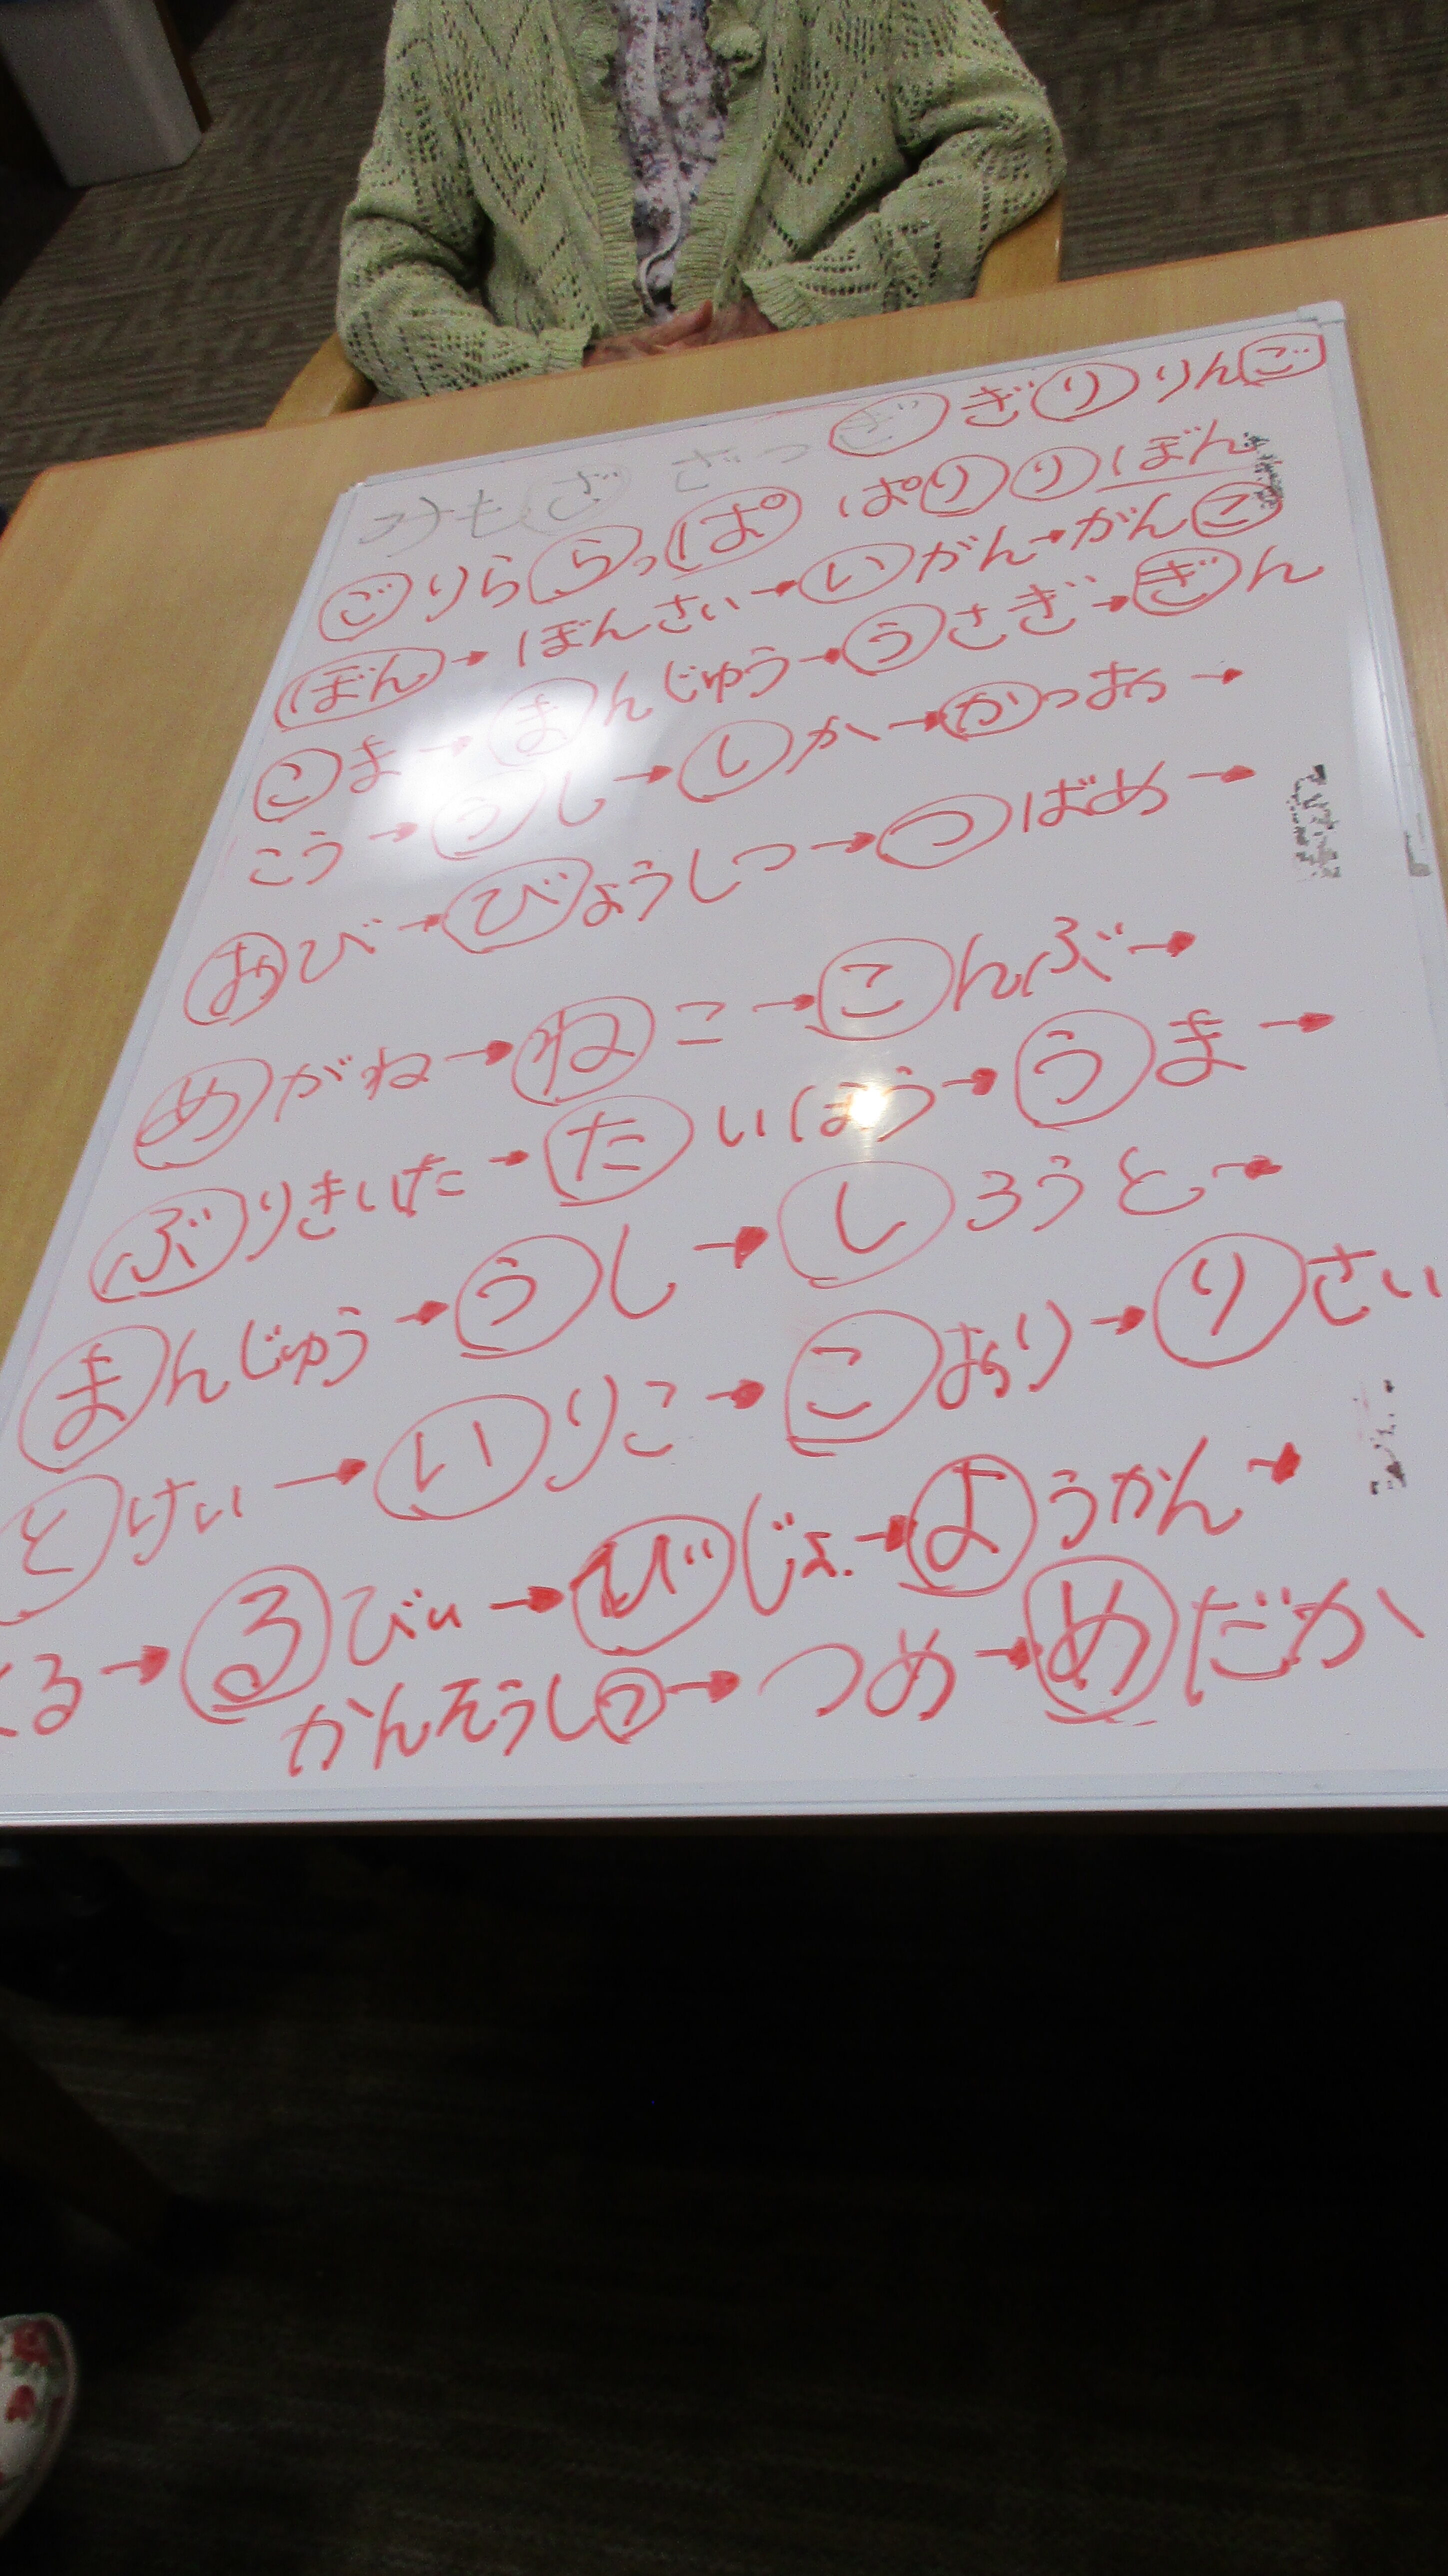 ざっし ぎ ぎり りんご
ごりら らっぱ ぱり り りぼん
ぼん→ぼんさい→いがん→がんこ
こま→まんじゅう→うさぎ→ぎん
こう→うし→しか→かつお→
おび→びようしつ→つばめ→
めがね→ねこ→こんぶ→
ぶりきいた→たいほう→うま→
まんじゅう→うし→しろうと→
とけい→いりこ→こおり→りさい
くる→るびい→びじょ→ようかん→
かんそうしつ→つめ→めだか